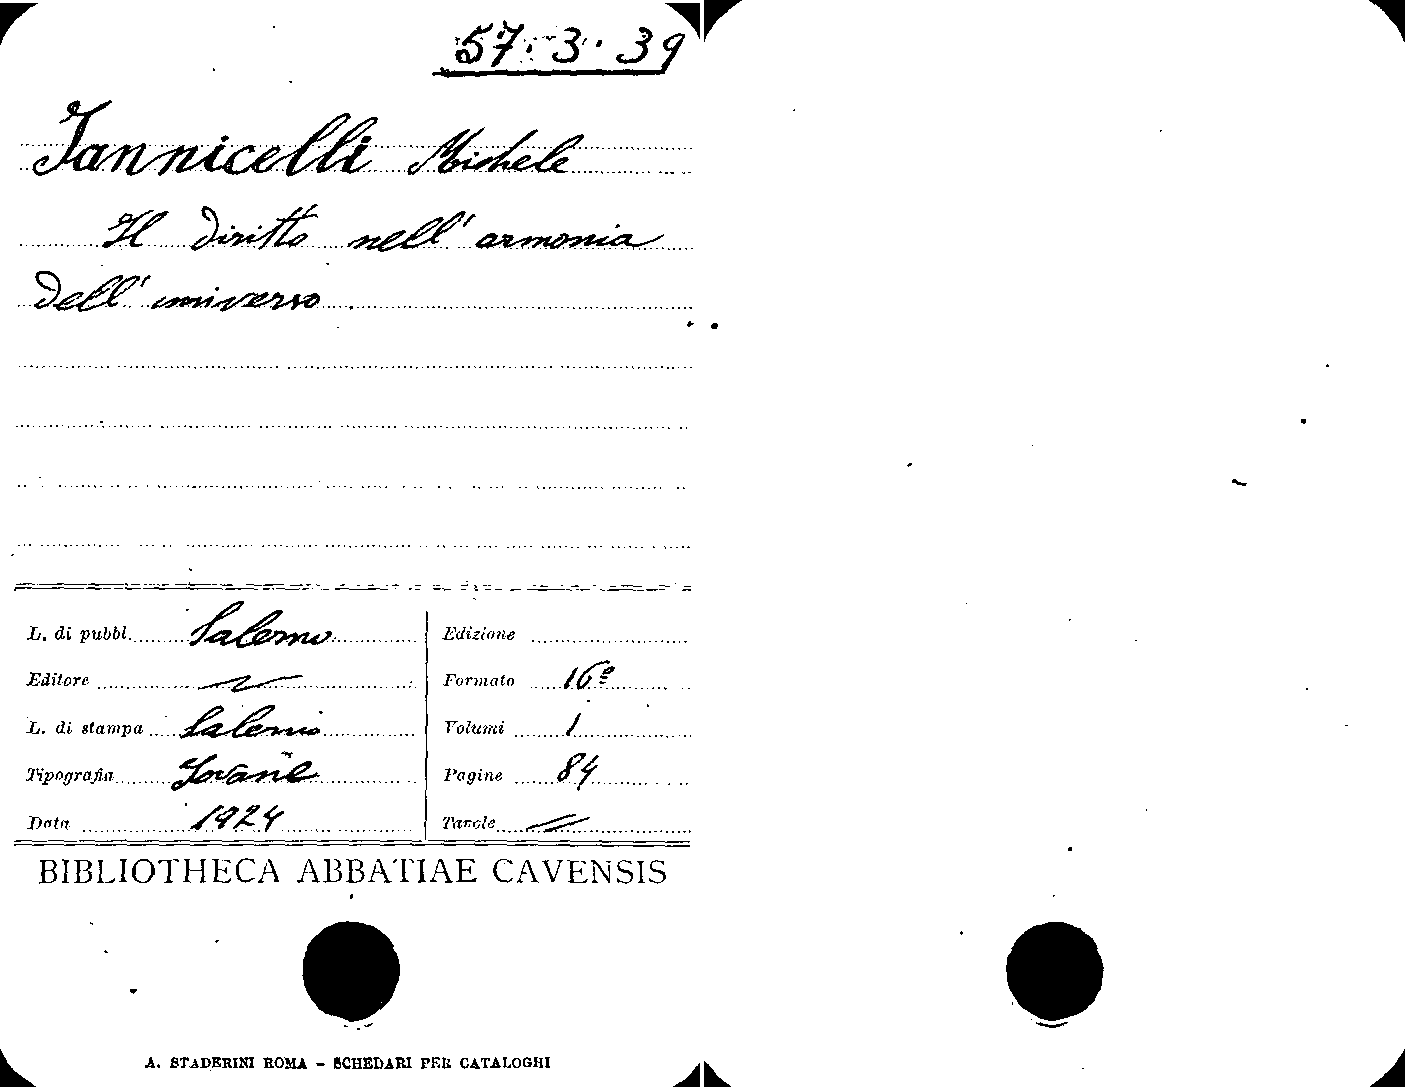 57. 3. 39
Iannicelli Michele
Il diritto nell'armonia
dell'universo.
L. di pubbl. Salerno
Editore
L. di stampa Salerno
Tipografia Jovane
Data 1924
Edizione
Formato 16º
Volumi 1
Pagine 84
Tavole
BIBLIOTHECA ABBATIAE CAVENSIS
A. STADERINI ROMA - SCHEDARI PER CATALOGHI